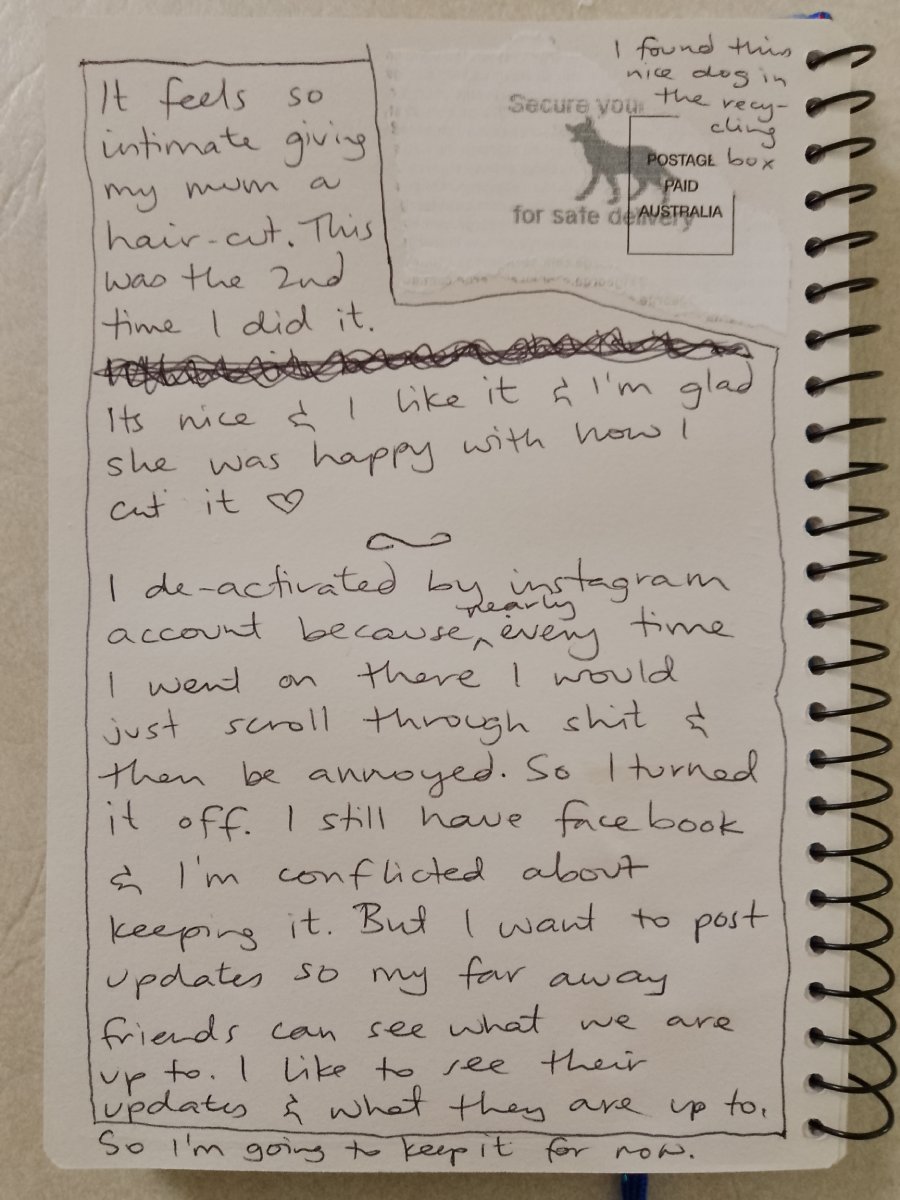 I found this
nice dog in
the recy-
cling
box
Secure your
for safe delivery
POSTAGE
PAID
AUSTRALIA
It feels so
intimate giving
my mum a
hair-cut. This
was the 2nd
time I did it.
Its nice & I like it & I'm glad
she was happy with how I
cut it ♡
I de-activated by instagram
account because nearly every time
I went on there I would
just scroll through shit &
then be annoyed. So I turned
it off. I still have facebook
& I'm conflicted about
keeping it. But I want to post
updates so my far away
friends can see what we are
up to. I like to see their
updates & what they are up to.
So I'm going to keep it for now.